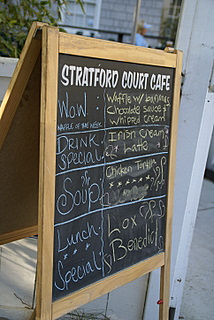 STRATFORD COURT CAFE
WOW
WAFFLE OF THE WEEK
Waffle w/ bananas
Chocolate sauce &
whipped cream
DRINK
Special
Irish Cream
Latte
Soup
Chicken Tortilla
Lunch
Special
Lox
Benedict